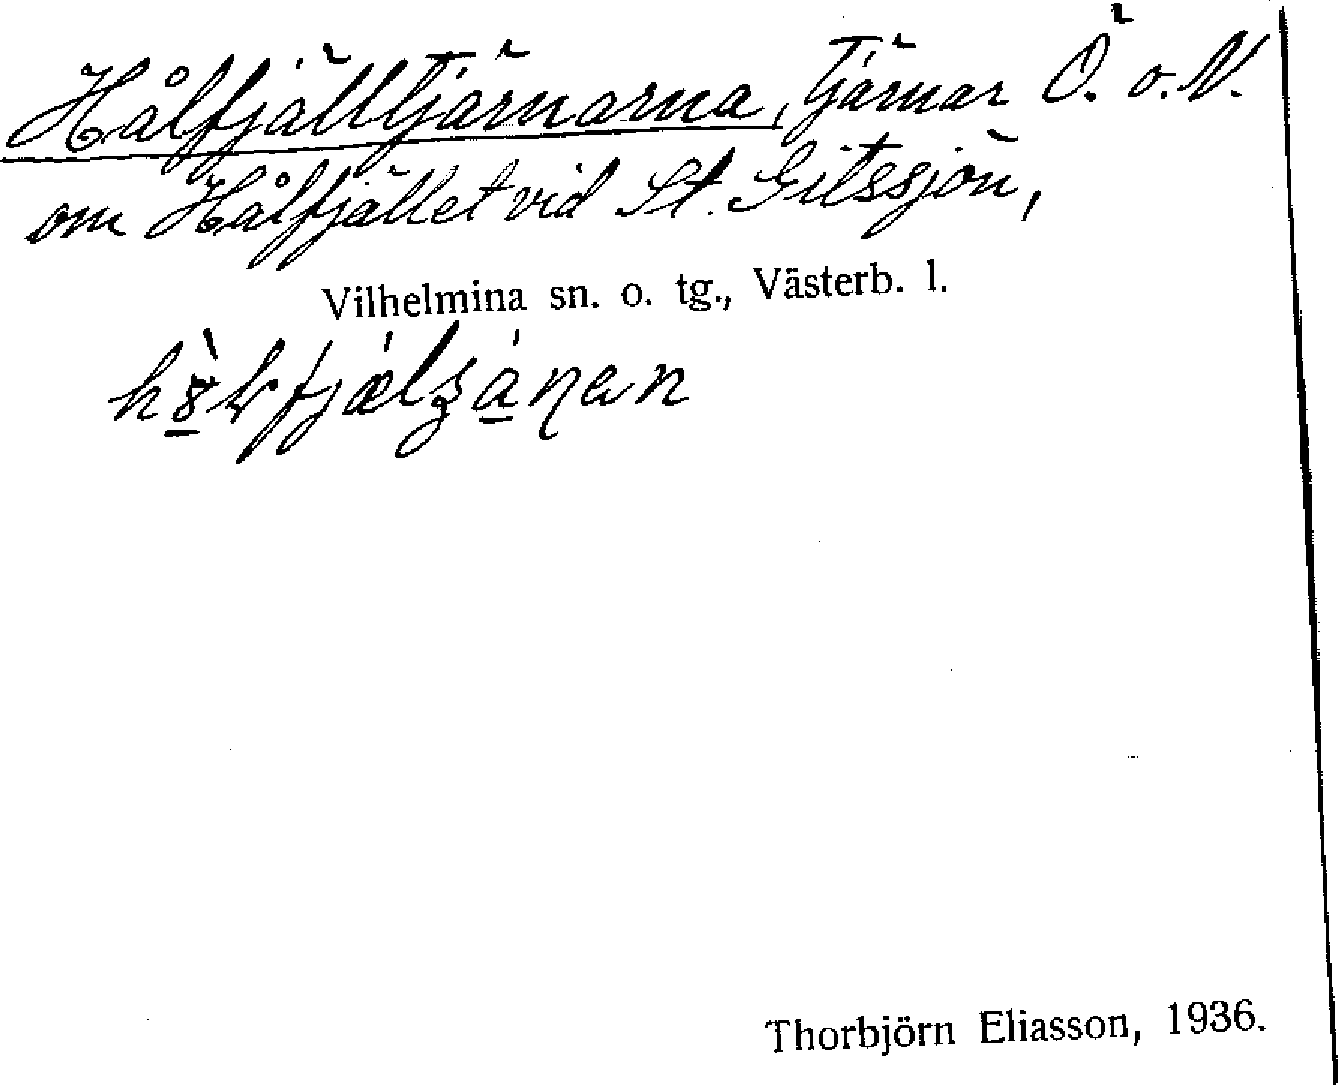 Hålfjälltjärnarna, Tjärnar Ö. o. N.
om Hålfjället vid St. Gitssjön,
Vilhelmina sn. o. tg., Västerb. l.
Thorbjörn Eliasson, 1936.